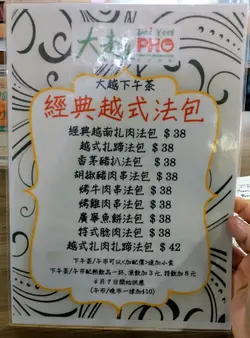 大越
PHO
大越下午茶
經典越式法包
經典越南扎肉法包 $38
越式扎蹄法包 $38
香茅豬扒法包 $38
胡椒豬肉法包 $38
烤牛肉串法包 $38
烤雞肉串法包 $38
廣寧魚餅法包 $38
特式腍肉法包 $38
越式扎肉扎蹄法包 $42
下午茶/午市可以<加配價>追加小食
下午茶/午市配熱飲品一杯, 凍飲加3元, 特飲加8元
(午市/晚市一律加$10)